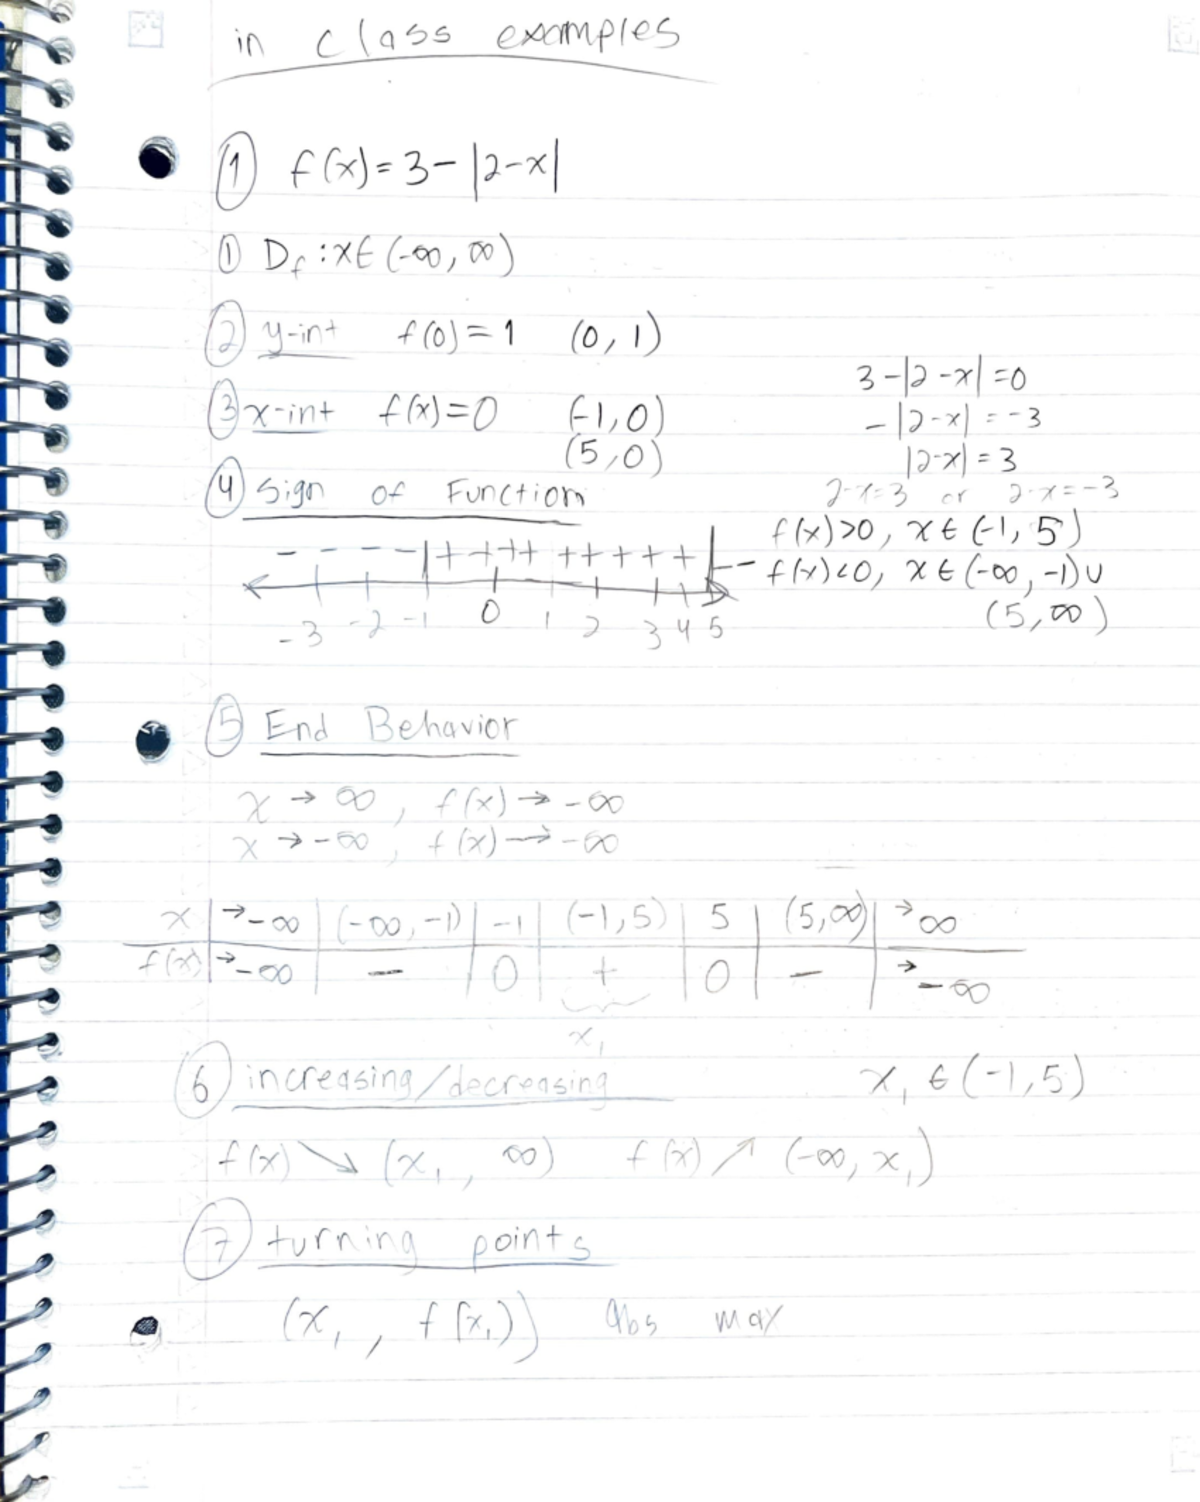 in class examples
① f(x)=3-|2-x|
① Df : x∈(-∞, ∞)
② y-int f(0)=1 (0, 1)
3-|2-x|=0
③ x-int f(x)=0 (-1,0)
-|2-x| = -3
(5,0)
|2-x| = 3
④ Sign of Function
2-x=3 or 2-x=-3
f(x)>0, x∈(-1, 5)
- - - - | + + + + + + + + + | - -
f(x)<0, x∈(-∞, -1)∪
(5, ∞)
-3 -2 -1 0 1 2 3 4 5
⑤ End Behavior
x → ∞, f(x) → -∞
x → -∞, f(x) → -∞
x | →-∞ | (-∞, -1) | -1 | (-1, 5) | 5 | (5, ∞) | →∞
f(x) | →-∞ | - | 0 | + | 0 | - | →-∞
x₁
⑥ increasing/decreasing x₁ ∈ (-1, 5)
f(x) ↘ (x₁, ∞) f(x) ↗ (-∞, x₁)
⑦ turning points
(x₁, f(x₁)) abs max